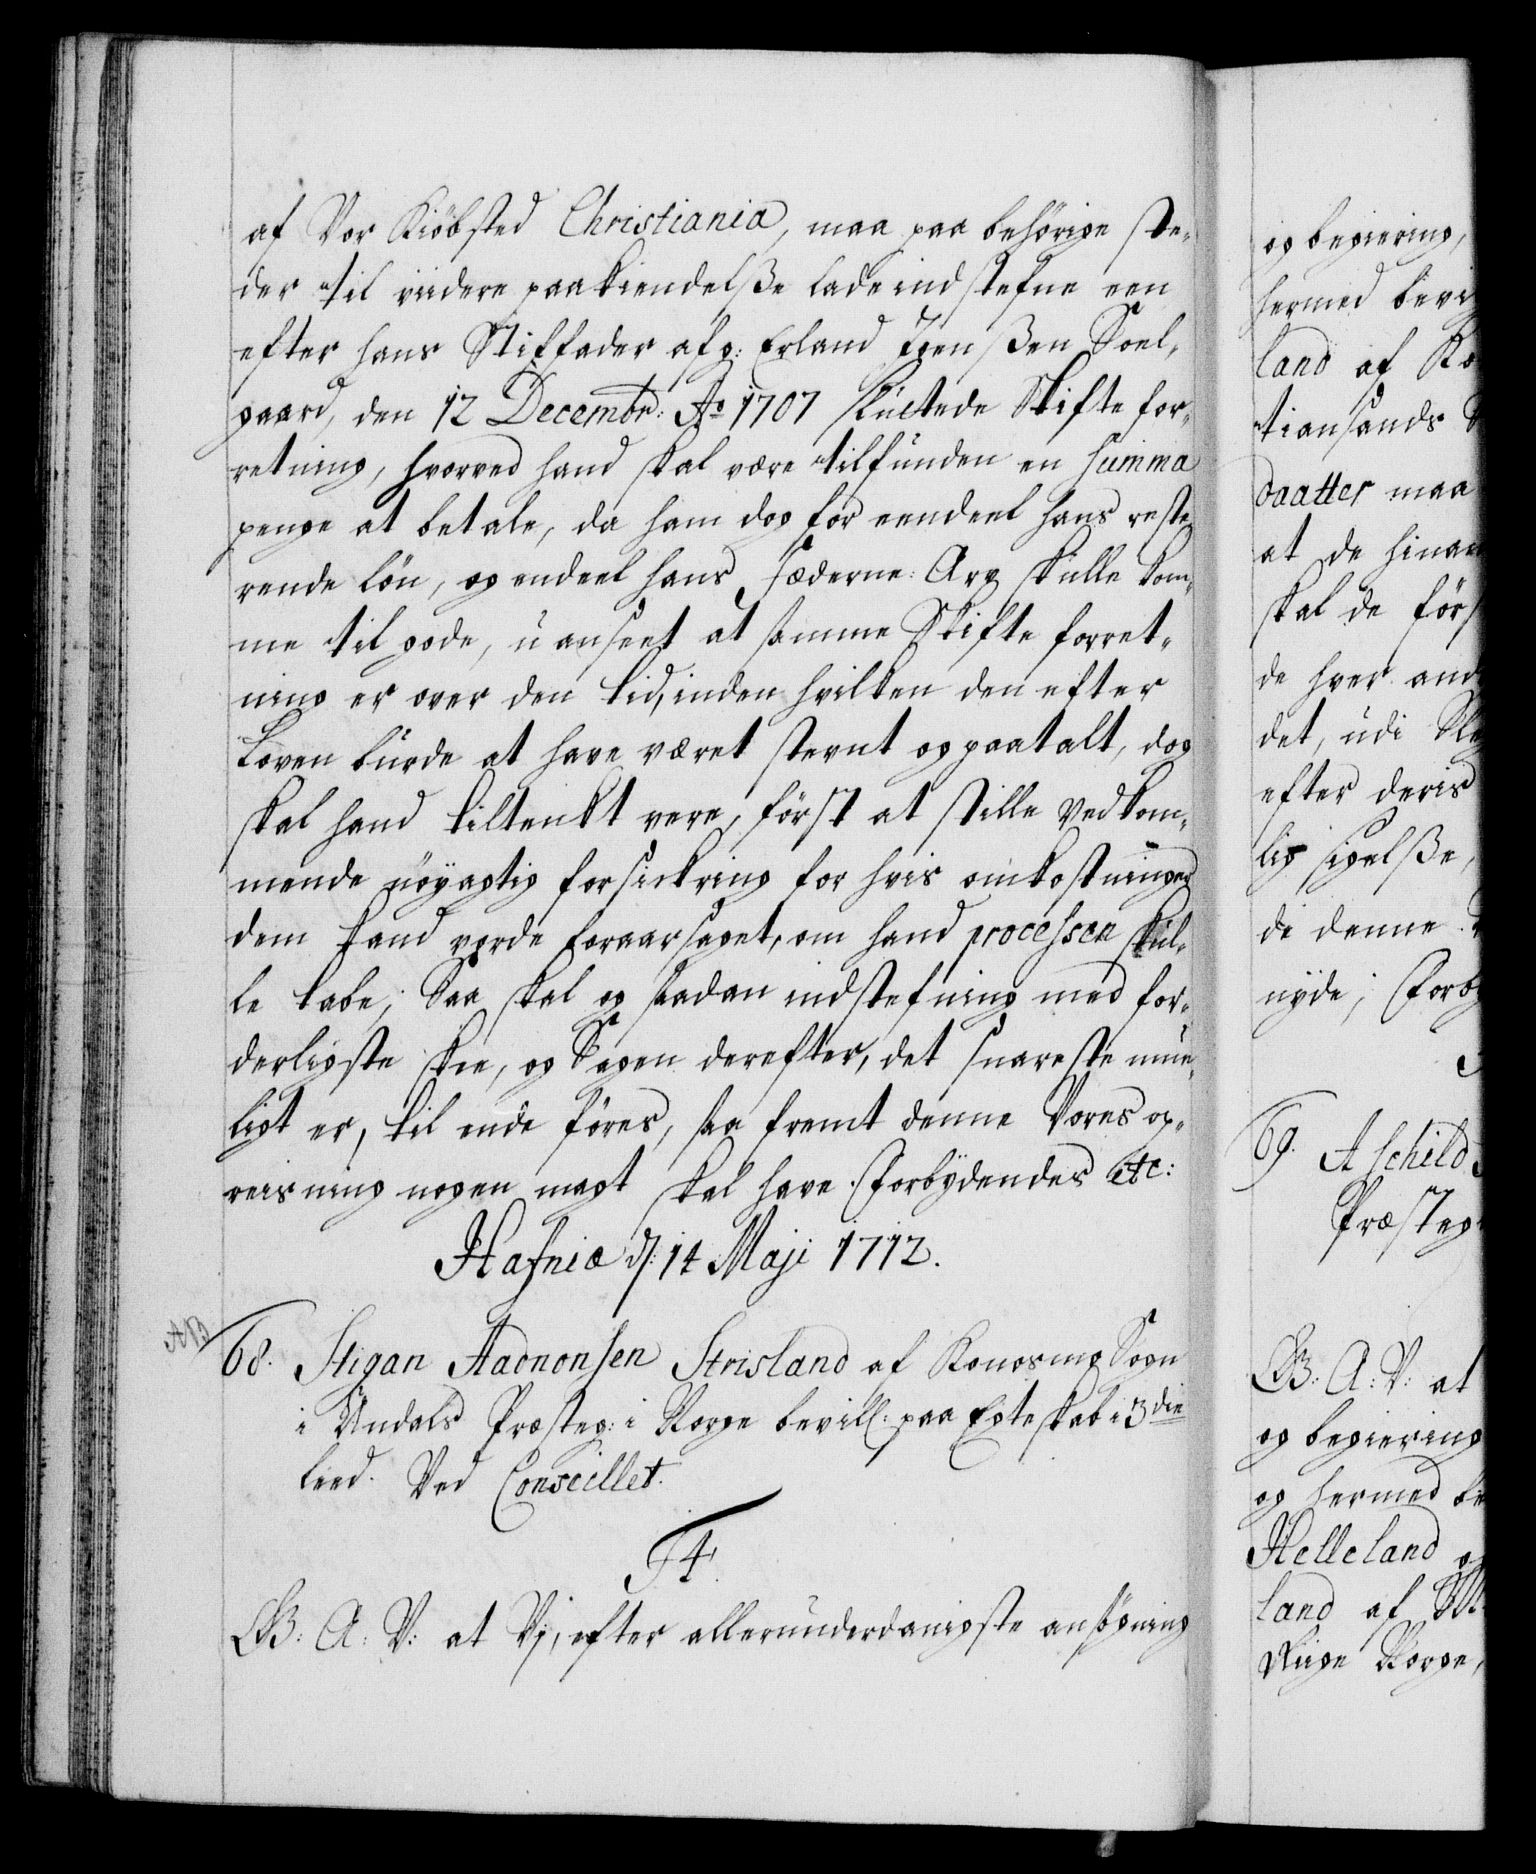 af Vor Kiöbsted Christiania, maa paa behörige ste-
der til viidere paakiendelße lade indstefne een
efter hans Stiffader afg: Erland Jgenßen Soel-
gaard, den 12 Decembr: Ao 1707 sluttede Skifte for-
retning, hvorved hand skal være tilfunden en summa
penge at betale, da ham dog for eendeel hans reste-
rende lön, og endeel hans Fæderne Arv skulle kom-
me til gode, uanseet at samme Skifte forret-
ning er over den tid, inden hvilken den efter
Loven burde at have været stevnt og paatalt, dog
skal hand tiltenkt vere, först at stille vedkom-
mende nöyagtig forsickring for hvis omkostninger
dem kand vorde foraarsaget, om hand processen skul-
le tabe; Saa skal og saadan indstefning med for-
derligste skee, og Sagen derefter, det snareste mue-
ligt er, til ende föres, saa fremt denne Vores op-
reisning nogen magt skal have. Forbydendes etc:
Hafniæ d: 14 Maji 1712.
AB
68. Stigan Aadnonsen Strisland af Konosmg Sogn
i Undals Præsteg: i Norge bevill: paa Egteskab i 3die
leed. Ved Conseillet.
F4.
G: A: V: at Vi, efter allerunderdanigste ansögning
og begiering,
hermed bevi
land af Ko
tiansands S
daatter maa
at de hinan
skal de förs
de hver and
det, udi Sle
efter deris
lig sigelße,
di denne
nyde; Forby
69. Aschild
Præsteg
G: A: V: at
og begiering
og hermed be
Helleland og
land af
Riige Norge,